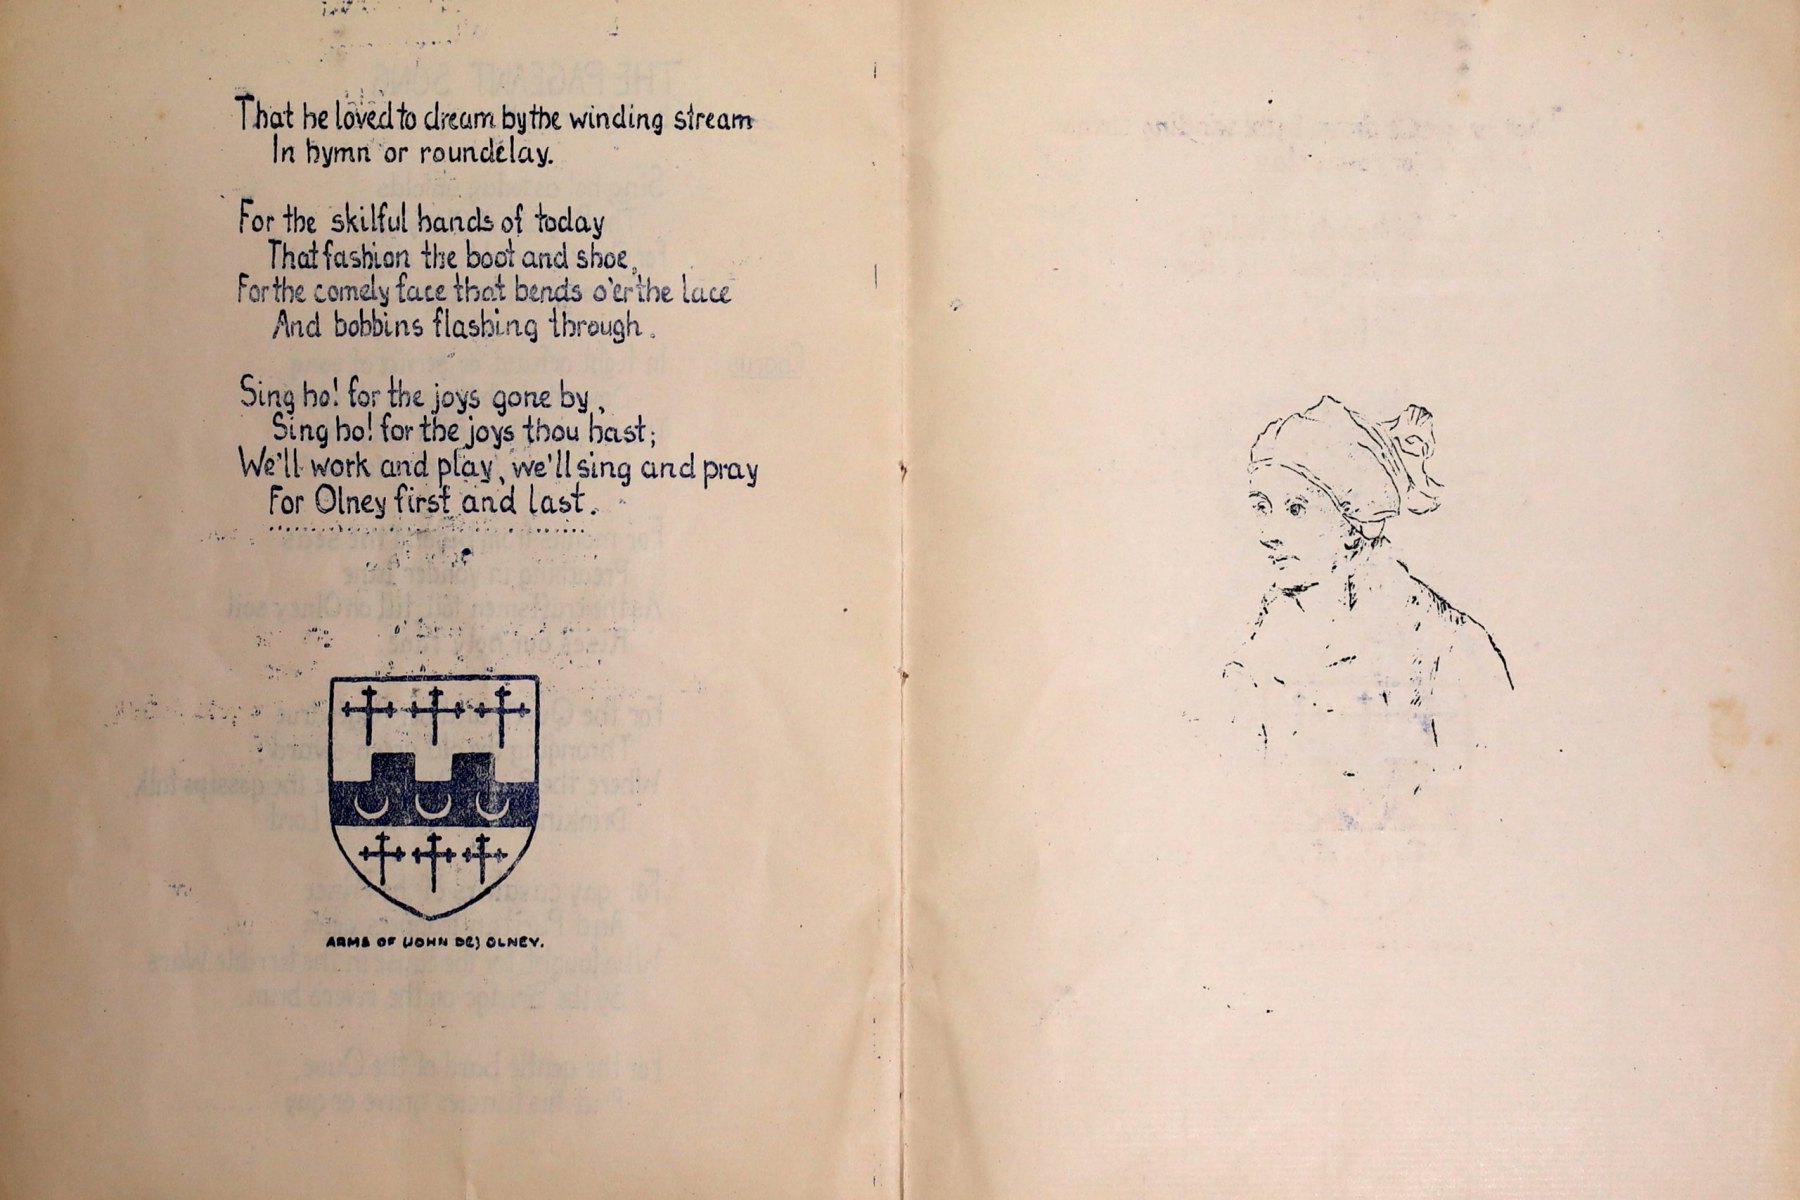 That he loved to dream by the winding stream
In hymn or roundelay.
For the skilful hands of today
That fashion the boot and shoe,
For the comely face that bends o'er the lace
And bobbins flashing through.
Sing ho! for the joys gone by,
Sing ho! for the joys thou hast;
We'll work and play, we'll sing and pray
For Olney first and last.
ARMS OF (JOHN DE) OLNEY.